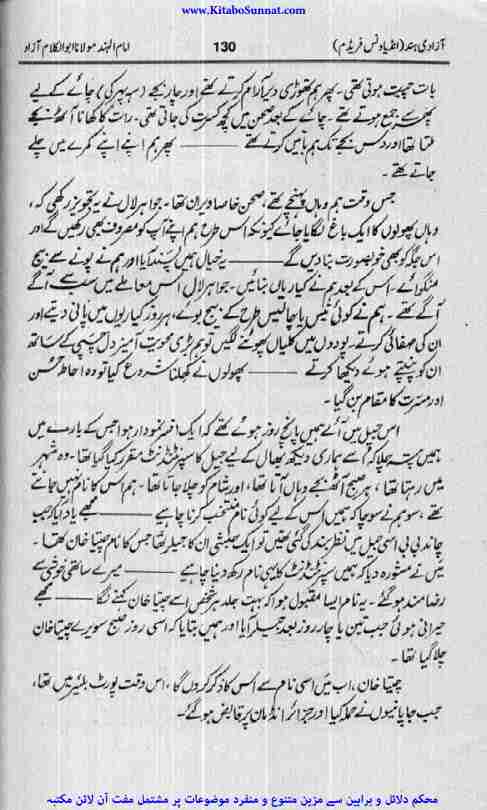 www.KitaboSunnat.com
آزادی ہند (انڈیا ونس فریڈم) 130 امام الہند مولانا ابوالکلام آزاد
بات چیت ہوتی تھی۔ پھر ہم تھوڑی دیر آرام کرتے تھے اور چار بجے (سہ پہر کی) چائے کے لیے
پھر سے جمع ہوتے تھے۔ چائے کے بعد صحن میں کچھ کسرت کی جاتی تھی۔ رات کا کھانا آٹھ بجے
ملتا تھا اور دس بجے تک ہم باتیں کرتے تھے ——— پھر ہم اپنے اپنے کمرے میں چلے
جاتے تھے۔
جس وقت ہم وہاں پہنچے تھے، صحن خاصا ویران تھا۔ جواہر لال نے یہ تجویز رکھی کہ،
وہاں پھولوں کا ایک باغ لگایا جائے کیونکہ اس طرح ہم اپنے آپ کو مصروف بھی رکھیں گے اور
اس جگہ کو بھی خوبصورت بنا دیں گے ——— یہ خیال ہمیں پسند آیا اور ہم نے پونے سے بیج
منگوائے، اس کے بعد ہم نے کیاریاں بنائیں۔ جواہر لال اس معاملے میں سب سے آگے
آگے تھے۔ ہم نے کوئی تیس یا چالیس طرح کے بیج بوئے، ہر روز کیاریوں میں پانی دیتے اور
ان کی صفائی کرتے۔ پودوں میں کلیاں پھوٹنے لگیں تو ہم بڑی محویت آمیز دل چسپی کے ساتھ
ان کو پنپتے ہوئے دیکھا کرتے ——— پھولوں نے کھلنا شروع کیا تو وہ احاطہ حسن
اور مسرت کا مقام بن گیا۔
اس جیل میں آئے ہمیں پانچ روز ہوئے تھے کہ ایک افسر نمودار ہوا جس کے بارے میں
ہمیں پتہ چلا کہ اسے ہماری دیکھ بھال کے لیے جیل کا سپرنٹنڈنٹ مقرر کیا گیا تھا۔ وہ شہر
میں رہتا تھا، ہر صبح آٹھ بجے وہاں آتا تھا، اور شام کو چلا جاتا تھا۔ ہم اس کا نام نہیں جانتے
تھے، سو ہم نے سوچا کہ ہمیں اس کے لیے کوئی نام منتخب کرنا چاہیے ——— مجھے یاد آیا کہ جب
چاند بی بی اسی جیل میں نظر بند کی گئی تھیں تو ایک حبشی ان کا جیلر تھا جس کا نام چیتا خان تھا۔
میں نے مشورہ دیا کہ ہمیں سپرنٹنڈنٹ کا یہی نام رکھ دینا چاہیے ——— میرے ساتھی خوشی سے
رضامند ہو گئے۔ یہ نام ایسا مقبول ہوا کہ بہت جلد ہر شخص اسے چیتا خان کہنے لگا ——— مجھے
حیرانی ہوئی جب تین یا چار روز بعد جیلر آیا اور ہمیں بتایا کہ اسی روز صبح سویرے چیتا خان
چلا گیا تھا۔
چیتا خان، اب میں اسی نام سے اس کا ذکر کروں گا، اس وقت پورٹ بلیئر میں تھا،
جب جاپانیوں نے حملہ کیا اور جزائر انڈمان پر قابض ہو گئے۔
محکم دلائل و براہین سے مزین متنوع و منفرد موضوعات پر مشتمل مفت آن لائن مکتبہ